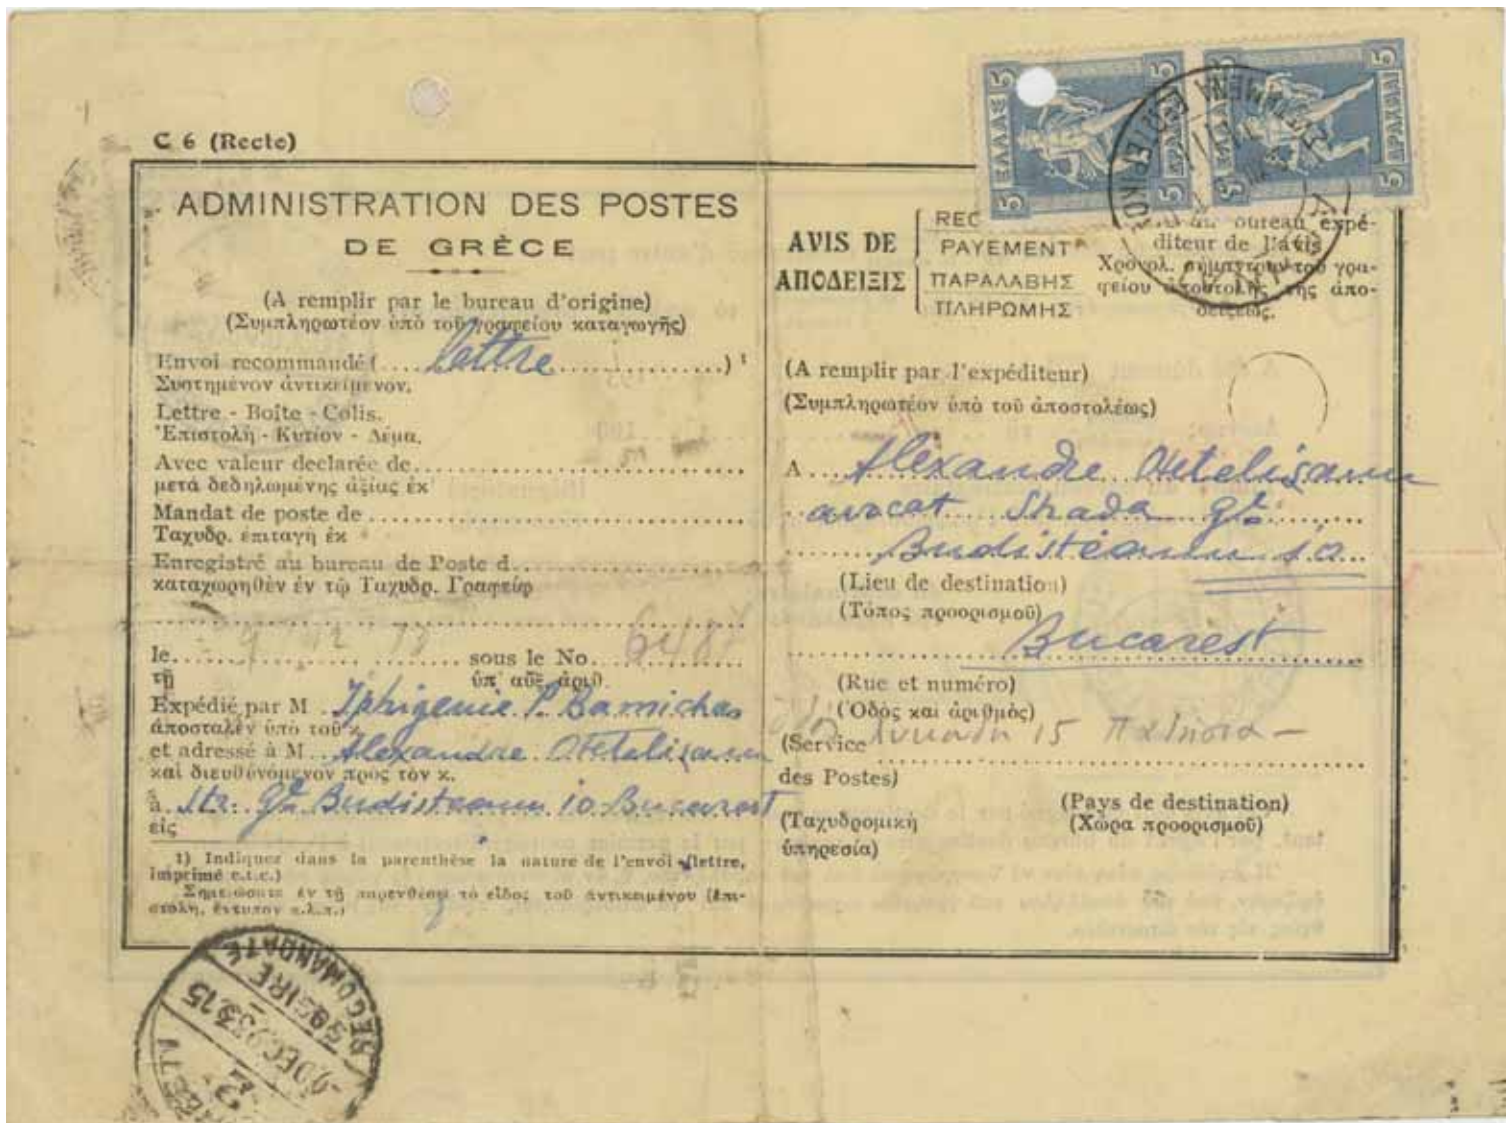 C 6 (Recto)
ΕΛΛΑΣ 5 5 ΔΡΑΧΜΑΙ 5 5
ΕΛΛΑΣ 5 5 ΔΡΑΧΜΑΙ 5 5
ADMINISTRATION DES POSTES
DE GRÈCE
(A remplir par le bureau d'origine)
(Συμπληρωτέον ὑπὸ τοῦ γραφείου καταγωγῆς)
Envoi recommandé (....lettre..............) ¹
Συστημένον ἀντικείμενον.
Lettre - Boîte - Colis.
Ἐπιστολὴ - Κυτίον - Δέμα.
Avec valeur declarée de
μετὰ δεδηλωμένης ἀξίας ἐκ
Mandat de poste de
Ταχυδρ. ἐπιταγὴ ἐκ
Enregistré au bureau de Poste d
καταχωρηθὲν ἐν τῷ Ταχυδρ. Γραφείῳ
le sous le No. 6487
τῇ ὑπ' αὔξ. ἀριθ.
Expédié par M Iphigenie P. Bamichas
ἀποσταλὲν ὑπὸ τοῦ κ.
et adressé à M Alexandre Otetelisanu
καὶ διευθυνόμενον πρὸς τὸν κ.
à Str. Gᵃˡ Budisteanu 10 Bucarest
εἰς
1) Indiquez dans la parenthèse la nature de l'envoi (lettre,
imprimé e.t.c.)
Σημειώσατε ἐν τῇ παρενθέσει τὸ εἶδος τοῦ ἀντικειμένου (ἐπι-
στολή, ἔντυπον κ.λ.π.)
AVIS DE
ΑΠΟΔΕΙΞΙΣ
REC
PAYEMENT
ΠΑΡΑΛΑΒΗΣ
ΠΛΗΡΩΜΗΣ
bureau expé-
diteur de l'avis
Χρονολ. σήμαντρον τοῦ γρα-
φείου ἀποστολῆς τῆς ἀπο-
δείξεως.
(A remplir par l'expéditeur)
(Συμπληρωτέον ὑπὸ τοῦ ἀποστολέως)
A Alexandre Otetelisanu
avocat Strada Gᵃˡ
Budisteanu 10
(Lieu de destination)
(Τόπος προορισμοῦ)
Bucarest
(Rue et numéro)
(Ὁδὸς καὶ ἀριθμός)
(Service 15 Πατήσια
des Postes)
(Pays de destination)
(Ταχυδρομικὴ (Χώρα προορισμοῦ)
ὑπηρεσία)
RECOMANDATE
SOSIRE
-9 DEC 933. 15